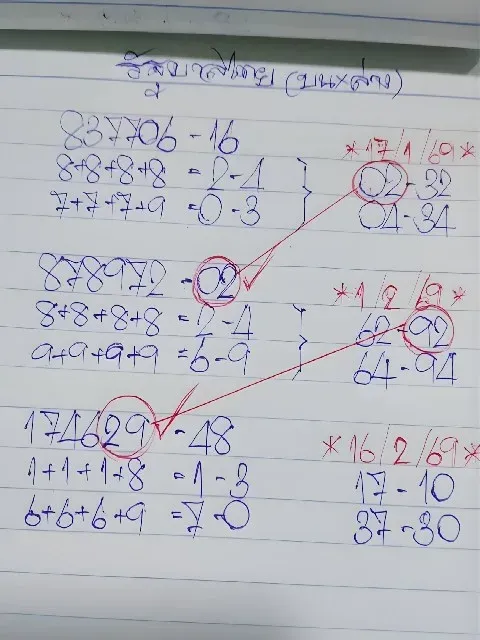 (บน×ล่าง)
837706 - 16
*17/1/69*
8+8+8+8 = 2 - 4
02 - 32
7+7+7+9 = 0 - 3
04 - 34
878972 - 02
*1/2/69*
8+8+8+8 = 2 - 4
62 - 92
9+9+9+9 = 6 - 9
64 - 94
174629 - 48
*16/2/69*
1+1+1+8 = 1 - 3
17 - 10
6+6+6+9 = 7 - 0
37 - 30